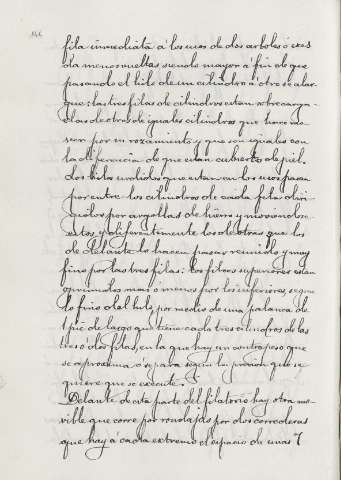 fila inmediata á los usos de dos arboles ó
da menos vueltas siendo mayor á fin de que
pasando el hilo de un cilindro á otro se alar-
gue: las tres filas de cilindros estan sobrecarga-
das de otras de iguales cilindros que hace
por su rozamiento y que son iguales con
la diferencia de que estan cubiertos de piel.
Los hilos urdidos que estan en los usos pasan
por entre los cilindros de cada fila diri-
gidos por argollas de hierro y moviendose
estos y diferentemente los de otras que los
de delante lo hacen pasar reunido y muy
fino por las tres filas: los filtros superiores estan
oprimidos mas o menos por los inferiores, segun
lo fino del hilo por medio de una palanca de
1 pie de largo que tiene cada tres cilindros de las
tres ó dos filas, en la que hay un contrapeso que
se aproxima ó separa segun la presion que se
quiere que se execute.
Delante de esta parte del filatorio hay otra mo-
vible que corre por rondajas por dos correderas
que hay á cada extremo el espacio de unas 7